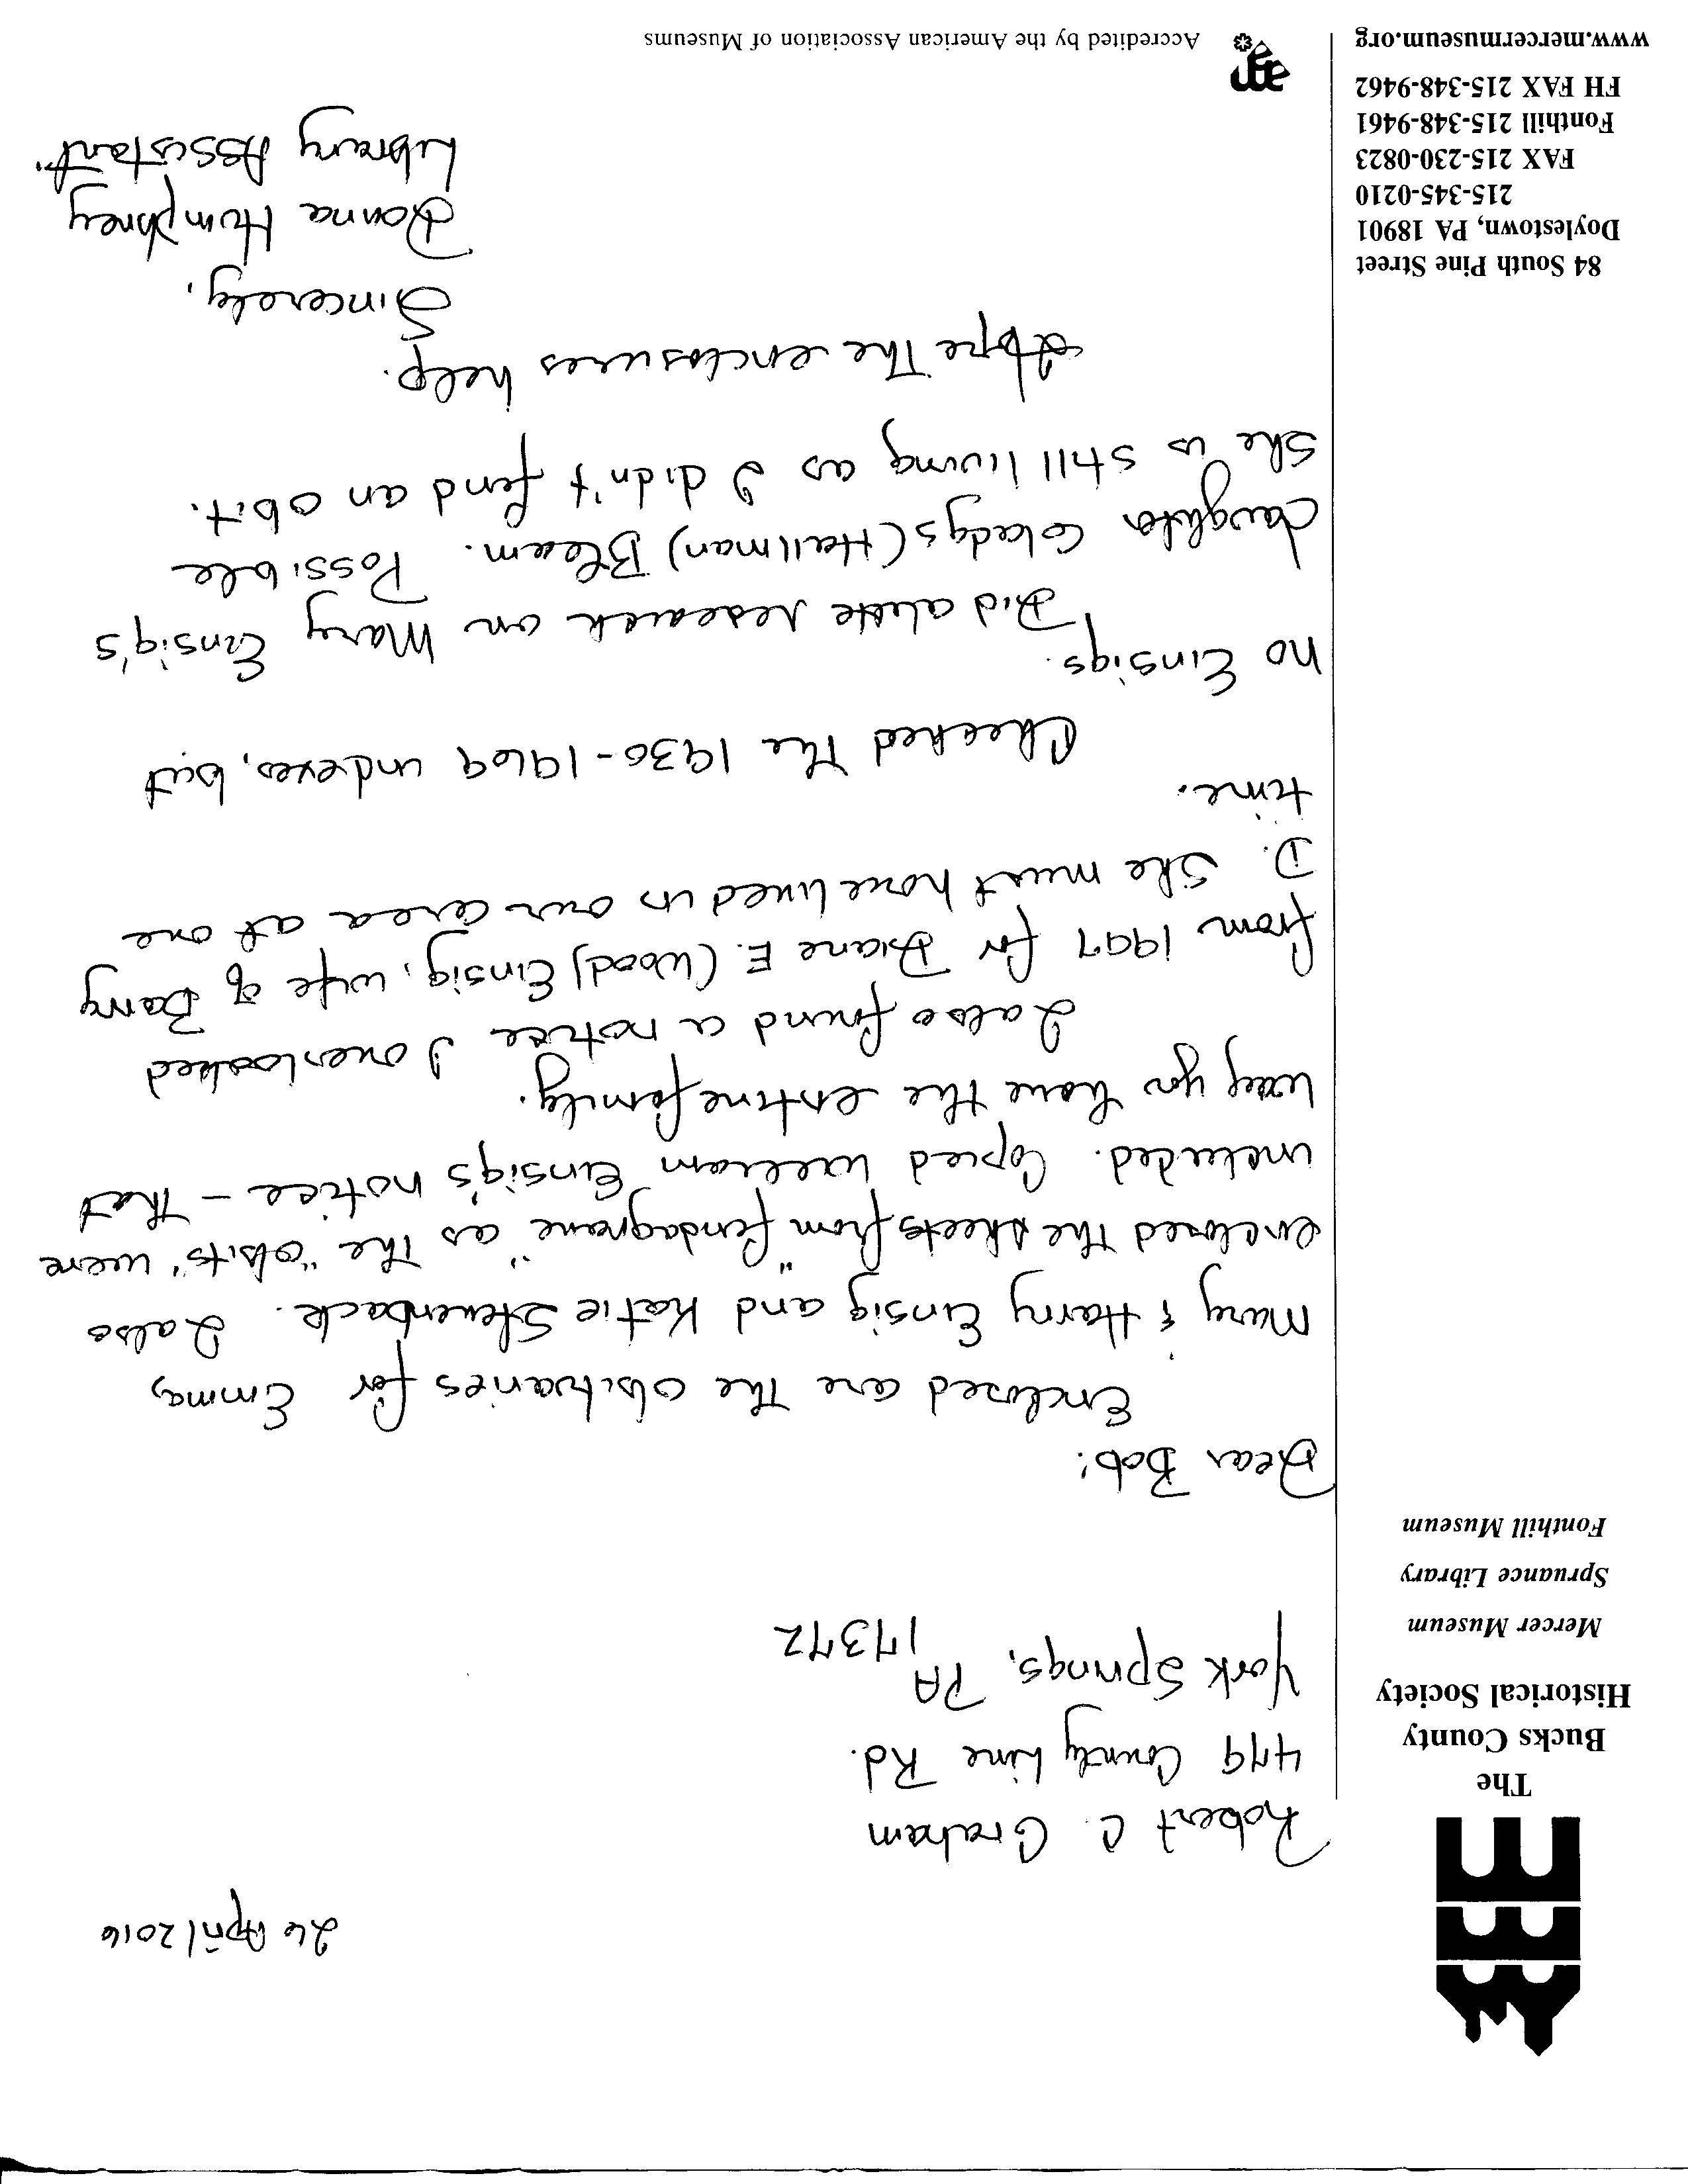 The
Bucks County
Historical Society
Mercer Museum
Spruance Library
Fonthill Museum
26 April 2016
Robert C. Graham
479 County Line Rd.
York Springs, PA
17372
Dear Bob:
Enclosed are the obituaries for Emma,
Mary & Harry Einsig and Katie Stewenback. I also
enclosed the sheets from "findagrave" as the "obits" were
included. Copied William Einsig's notice - that
way you have the entire family.
I also found a notice I overlooked
from 1997 for Diane E. (Wood) Einsig, wife of Barry
D. She must have lived in our area at one
time.
Checked the 1930-1969 indexes, but
no Einsigs.
Did a little research on Mary Einsig's
daughter Gladys (Hallman) Bleam. Possible
she is still living as I didn't find an obit.
Hope the enclosures help.
Sincerely,
Donna Humphrey
Library Assistant
84 South Pine Street
Doylestown, PA 18901
215-345-0210
FAX 215-230-0823
Fonthill 215-348-9461
FH FAX 215-348-9462
www.mercermuseum.org
Accredited by the American Association of Museums